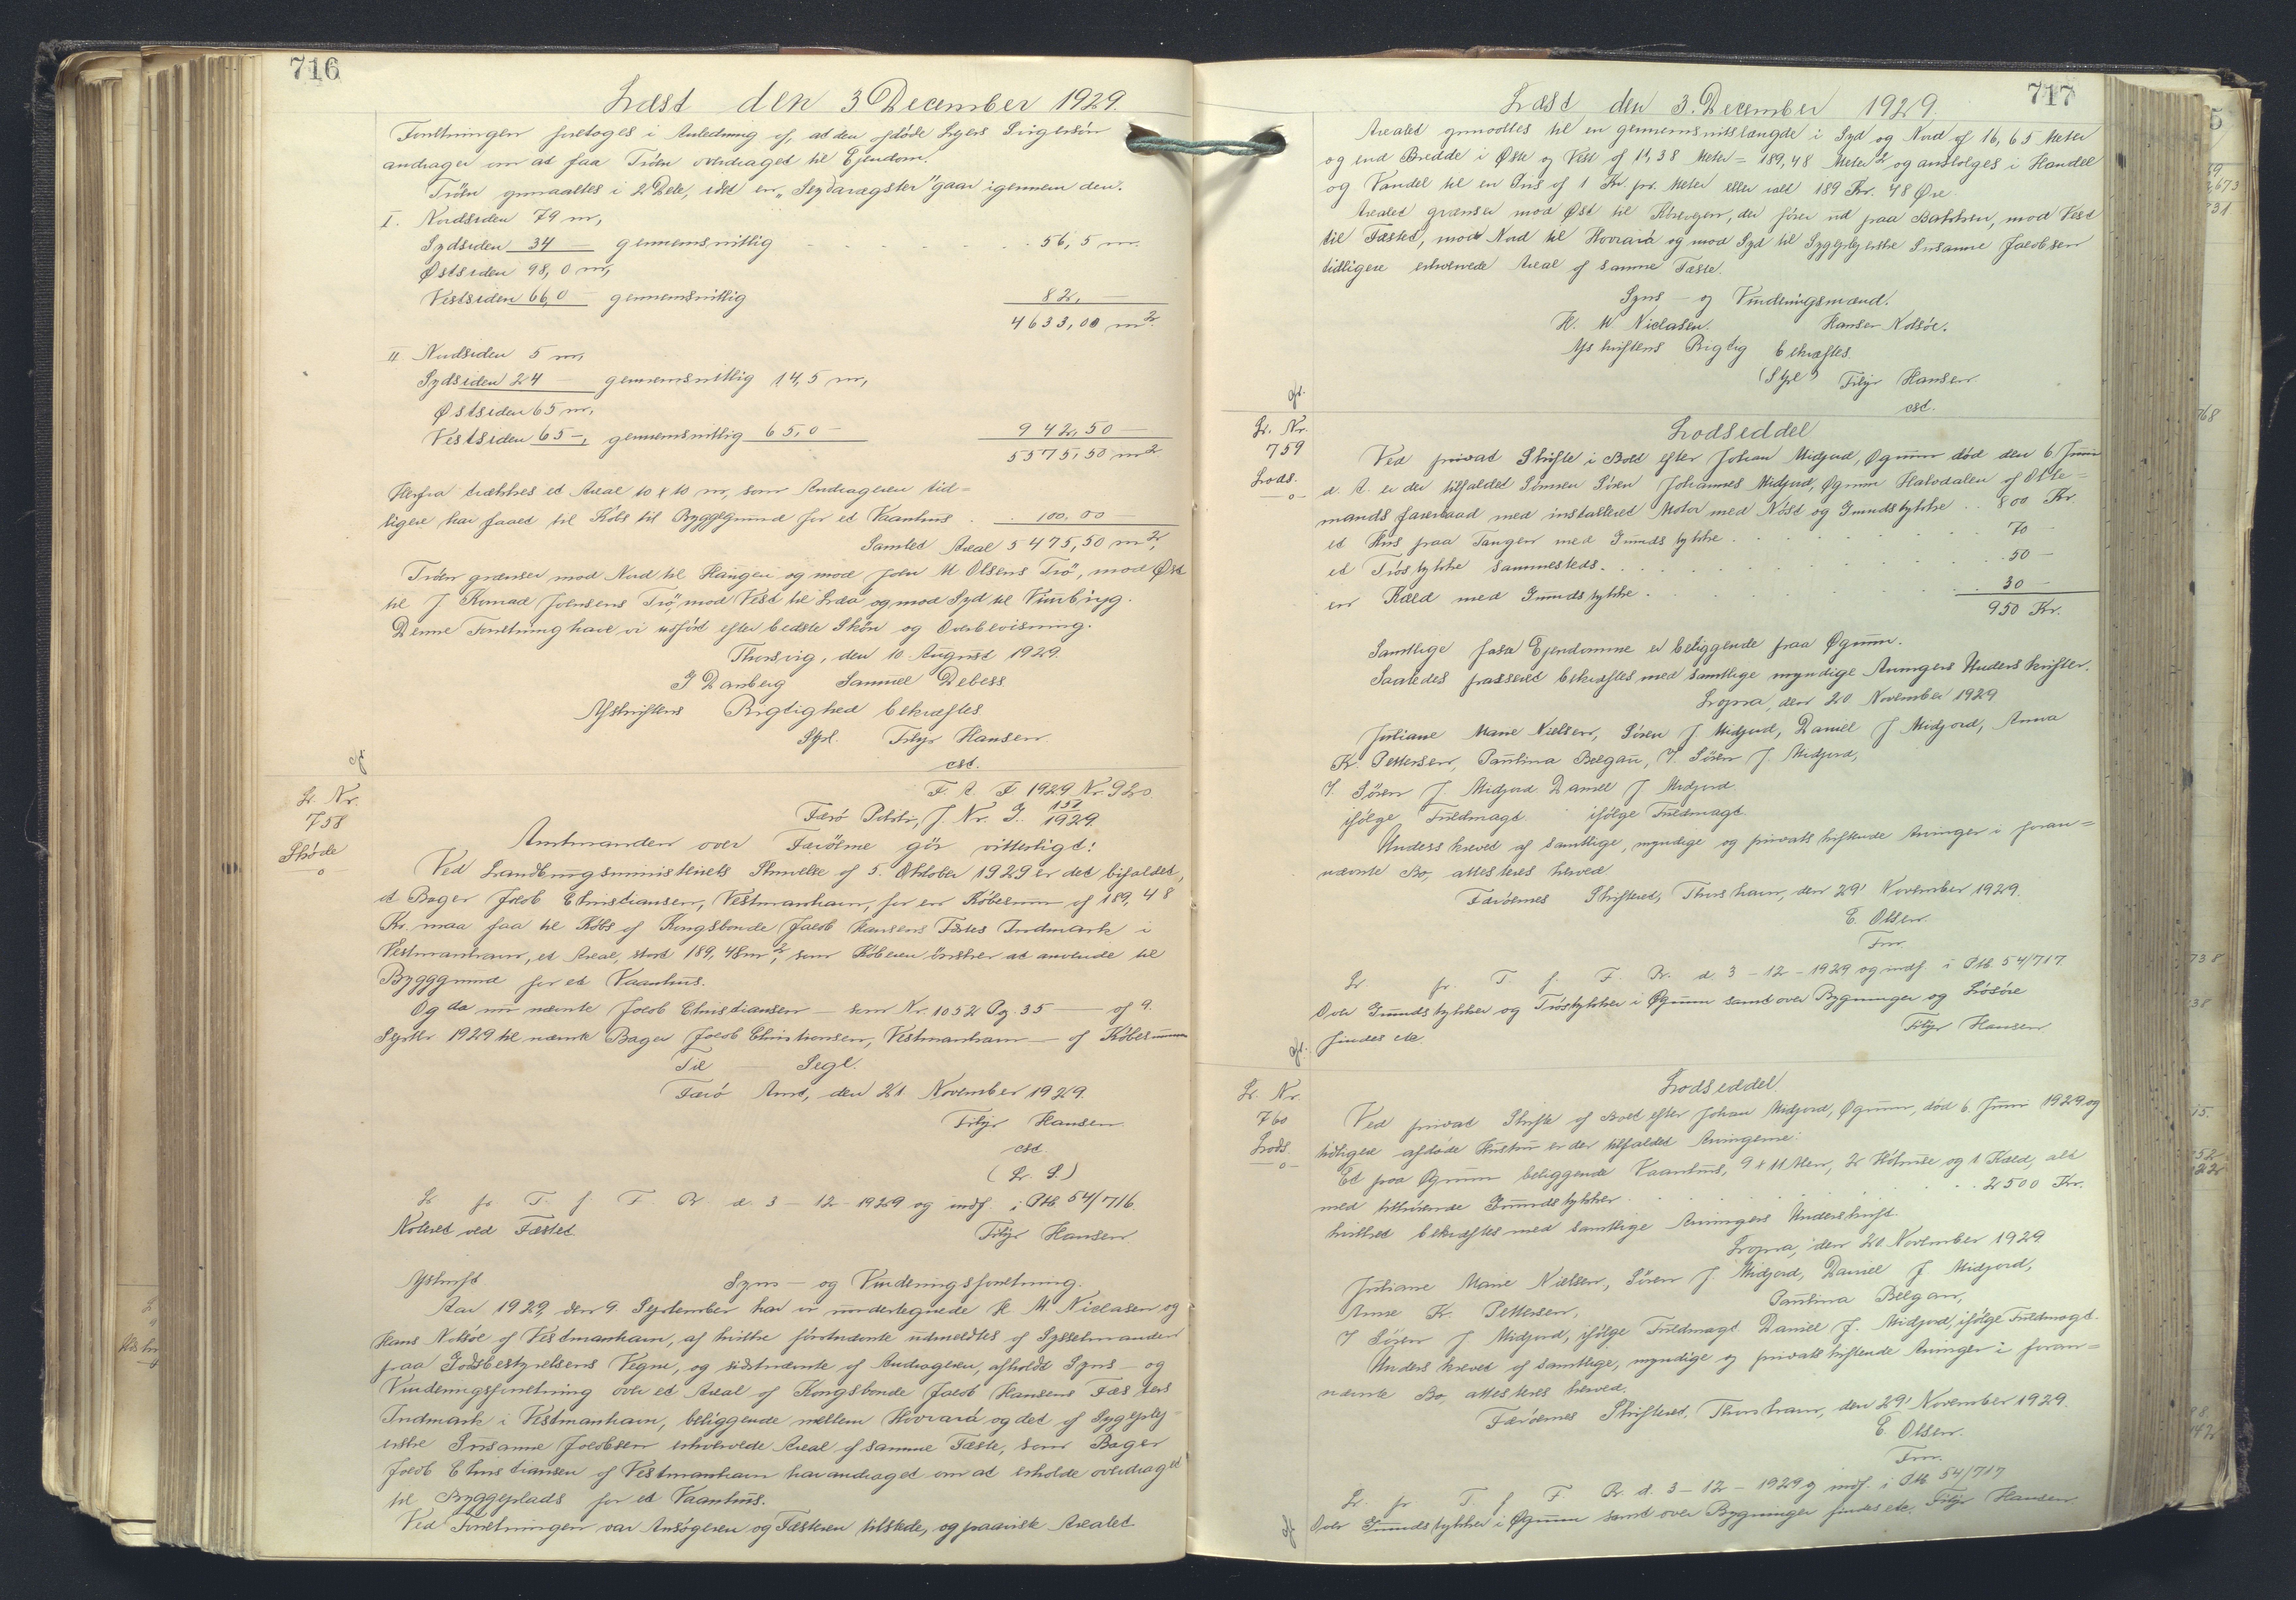 716
Læst den 3 December 1929.
Forretningen foretoges i Anledning af, at den afdøde Ejers Svigersön
andrager om at faa Tröen overdraget til Ejendom.
Tröen opmaaltes i 2 Dele, idet en „Seydarægster" gaar igennem den.
I. Nordsiden 79 m,
Sydsiden 34 — gennemsnitlig 56,5 m.
Østsiden 98,0 m,
Vestsiden 66,0 — gennemsnitlig 82, —
4633,00 m2.
II Nordsiden 5 m,
Sydsiden 24 — gennemsnitlig 14,5 m,
Østsiden 65 m,
Vestsiden 65 —, gennemsnitlig 65,0 — 942,50 —
5575,50 m2
Herfra trækkes et Areal 10 x 10 m, som Andrageren tid=
ligere har faaet til Købs til Byggegrund for et Vaanhus . . 100,00
Samlet Areal 5475,50 m2,
Tröen grænser mod Nord til Haugen og mod Joen M. Olsens Trö, mod Øst
til J Konrad Joensens Trö, mod Vest til Læa og mod Syd til
Denne Forretning have vi udført efter bedste Skön og Overbevisning.
Thorsvig, den 10. August 1929.
J Danberg Samuel Debess
Afskriftens Rigtighed bekræftes
Sgl. Filip Hansen
cst.
gf
L. Nr.
758
Skøde
—o
F. A. F. 1929 Nr. 920
Færö Politi, J. Nr. J. 137/1929.
Amtmanden over Færöerne gör vitterligt:
Ved Landbrugsministeriets Skrivelse af 5. Oktober 1929 er det bifaldet,
at Bager Jacob Christiansen, Vestmanhavn, for en Köbesum af 189,48
Kr. maa faa til Köbs af Kongsbonde Jacob Hansens Fæstes Indmark i
Vestmanhavn, et Areal, stort 189,48 m2, som Köberen önsker at anvende til
Byggegrund for et Vaanhus.
Og da nu nævnte Jacob Christiansen — som Nr. 1052 Pg. 35 — af 9.
Septbr 1929 til nævnte Bager Jacob Christiansen, Vestmanhavn — af Köbesummen
Til — Segl.
Færö Amt, den 21 November 1929.
Filip Hansen
cst.
(L. S.)
L fr T. f. F. R. d. 3 - 12 - 1929 og indf. i Ptb 54/716.
Noteret ved Fæstet Filip Hansen
Afskrift. Syns — og Vurderingsforretning.
Aar 1929, den 9. September har vi undertegnede H. M. Niclasen og
Hans Nolsöe af Vestmanhavn, af hvilke förstnævnte udmeldtes af Sysselmanden
paa Jordbestyrelsens Vegne, og sidstnævnte af Andrageren, afholdt Syns — og
Vurderingsforretning over et Areal af Kongsbonde Jacob Hansens Fæstes
Indmark i Vestmanhavn, beliggende mellem Hovrará og det af Sygeplej-
erske Susanne Jacobsen erhvervede Areal af samme Fæste, som Bager
Jacob Christiansen af Vestmanhavn har andraget om at erholde overdraget
til Byggeplads for et Vaanhus.
Ved Forretningen var Ansögeren og Fæsteren tilstede, og paaviste Arealet
717
Læst den 3. December 1929.
Arealet opmaaltes til en gennemsnitslængde i Syd og Nord af 16,65 Meter
og end Bredde i Øst og Vest af 11,38 Meter = 189,48 Meter2 og ansloges i Handel
og Vandel til en Pris af 1 Kr. pr. Meter eller ialt 189 Kr. 48 Øre.
Arealet grænser mod Øst til Körevejen, der förer ud paa Bakken, mod Vest
til Fæstet, mod Nord til Hovrará og mod Syd til Sygeplejerske Susanne Jacobsen
tidligere erhvervede Areal af samme Fæste.
Syns — og Vurderingsmænd.
H. M. Niclasen. Hanser Nolsöe.
Afskriftens Rigtig bekræftes
(Sgl.) Filip Hansen
cst.
gf.
L. Nr.
759
Lods.
—o—
Lodseddel
Ved privat Skifte i Boet efter Johan Midjord, Øgrum död den 6 Juni
d. A. er der tilfaldet Sönnen Sören Johannes Midjord, Øgrum Halvdelen af Otte=
mands farsbaad med installeret Motor med Nöst og Grundstykke . . 800 Kr.
et Hus paa Tangen med Grundstykke . . . 70
et Tröstykke sammesteds . . . 50 —
en Kæld med Grundstykke . . . 30 —
950 Kr.
Samtlige faste Ejendomme er beliggende paa Øgrum.
Saaledes passeret bekræftes med samtlige myndige Arvingers Underskrifter.
Lopra, den 20 November 1929
Juliane Marie Nielsen, Sören J Midjord, Daniel J Midjord, Anna
Kr. Pettersen, Paulina Belgau, V. Sören J. Midjord,
V. Sören J. Midjord Daniel J Midjord
ifölge Fuldmagt. ifölge Fuldmagt.
Underskrevet af samtlige, myndige og privatskiftende Arvinger i foran=
nævnte Bo, attesteres herved
Færöernes Skifteret, Thorshavn, den 29' November 1929.
E. Olsen.
Fm.
L fr. T. f. F. R. d. 3 - 12 - 1929 og indf. i Ptb. 54/717
Over Grundstykker og Tröstykker i Øgrum samt over Bygninger og Lösöre
findes etc. Filip Hansen
gf.
L. Nr.
760
Lods.
—o—
Lodseddel
Ved privat Skifte af Boet efter Johan Midjord, Øgrum, död 6. Juni 1929 og
tidligere afdöde Hustru er der tilfaldet Arvingerne:
Et paa Øgrum beliggende Vaanhus, 9 x 11 Alen, 2 Hölmule og 1 Kæld, alt
med tilhörende Grundstykker . . . 2500 Kr.
hvilket bekræftes med samtlige Arvingers Underskrift.
Lopra, den 20. November 1929
Juliane Marie Nielsen, Sören J. Midjord, Daniel J Midjord,
Anne Kr. Pettersen, Paulina Belgau,
V Sören J Midjord, ifölge Fuldmagt Daniel J. Midjord, ifölge Fuldmagt.
Underskrevet af samtlige, myndige og privatskiftende Arvinger i foran=
nævnte Bo, attesteres herved.
Færöernes Skifteret, Thorshavn, den 29' November 1929.
E. Olsen.
Fm.
L. fr T. f F. R. d. 3 - 12 - 1929 og indf. i Ptb 54/717
Over Grundstykker i Øgrum samt over Bygninger findes etc. Filip Hansen
gf